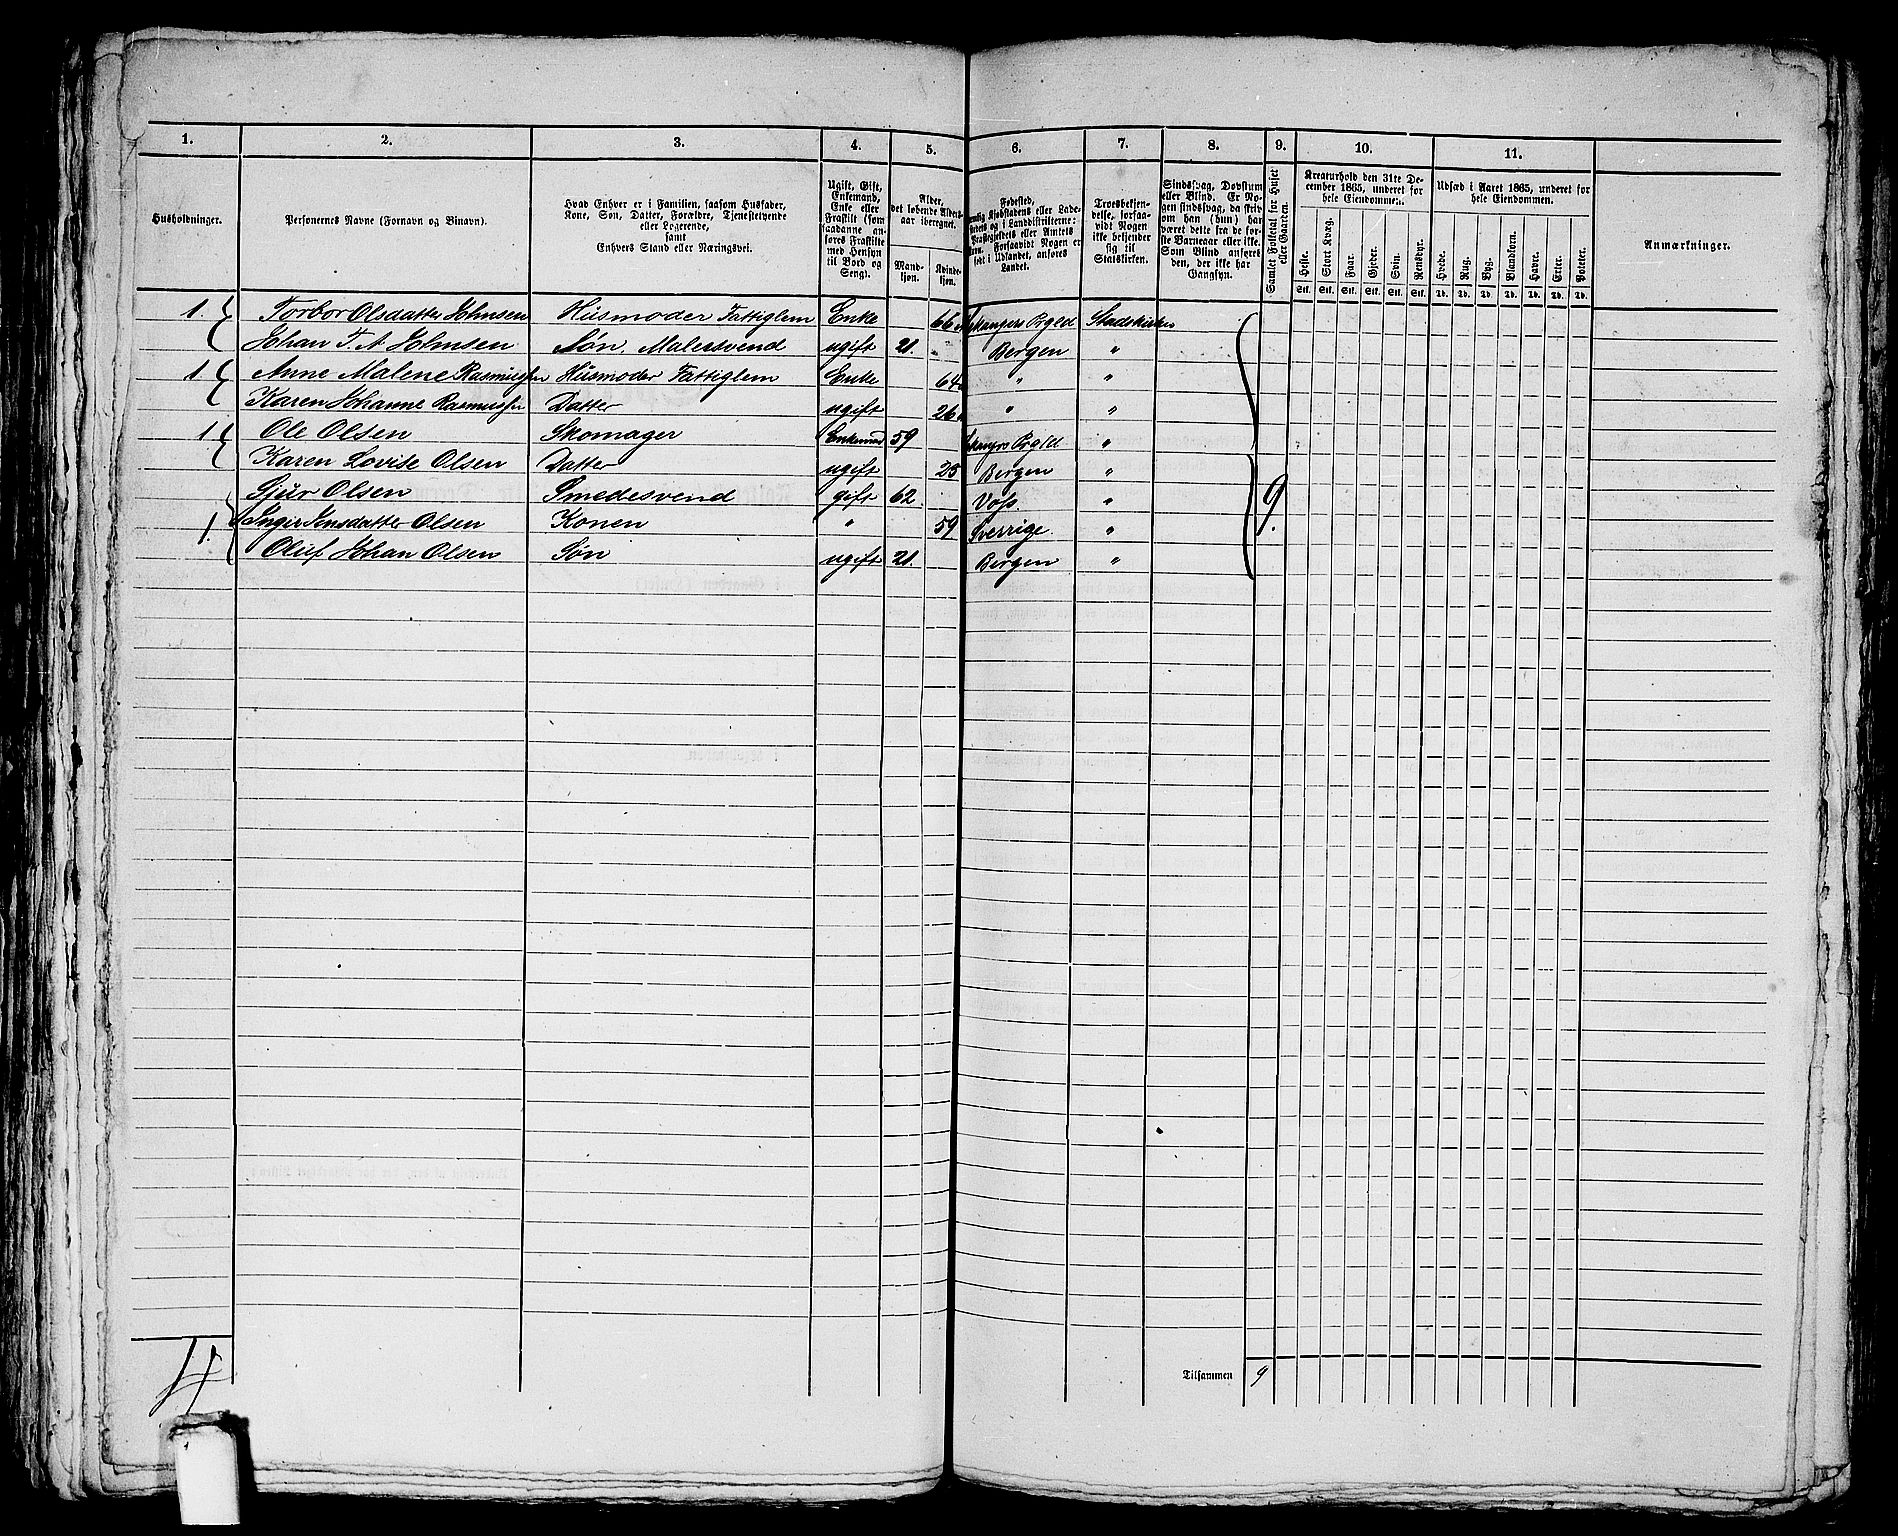 1. 2. 3. 4. 5. 6. 7. 8. 9. 10. 11.
Husholdninger.
Personernes Navne (Fornavn og Binavn).
Hvad Enhver er i Familien, saasom Husfader,
Kone, Søn, Datter, Forældre, Tjenestetyende
eller Logerende,
samt
Enhvers Stand eller Næringsvei.
Ugift, Gift,
Enkemand,
Enke eller
Fraskilt (som
saadanne an-
føres Fraskilte
med Hensyn
til Bord og
Seng).
Alder,
det løbende Alders-
aar iberegnet.
Mand-
kjøn.
Kvinde-
kjøn.
Fødested,
Kjøbstadens eller Lade-
stedets og i Landdistrikterne:
Præstegjeldets eller Amtets
Navn.
Forsaavidt Nogen er
født i Udlandet, anføres
Landet.
Troesbekjen-
delse, forsaa-
vidt Nogen
ikke bekjender
sig til
Statskirken.
Sindssvag, Døvstum
eller Blind. Er No-
gen sindssvag, da skriv
om han (hun) har
været dette fra de før-
ste Barneaar eller ikke.
Som Blind anføres
den, der ikke har
Gangsyn.
Samlet Folketal for Huset
eller Gaarden.
Kreaturhold den 31te De-
cember 1865, underet for
hele Eiendommen.
Heste. Stort Kvæg. Faar. Gjeder. Svin. Rensdyr.
Stk. Stk. Stk. Stk. Stk. Stk.
Udsæd i Aaret 1865, underet for
hele Eiendommen.
Hvede. Rug. Byg. Blandkorn. Havre. Erter. Poteter.
Td. Td. Td. Td. Td. Td. Td.
Anmærkninger.
1. Torbor Olsdatter Johnsen Husmoder Fattiglem Enke 66 Prgld Stadskirken
Johan T. A Johnsen Søn. Malersvend ugift 21. Bergen "
1 Anne Malene Rasmussen Husmoder Fattiglem Enke 64 " "
Karen Johanne Rasmussen Datter ugift 26 " "
1 Ole Olsen Skomager Enkemd 59 Prgld "
Karen Lovise Olsen Datter ugift 25 Bergen "
Sjur Olsen Smedesvend gift 62. Voss "
1. Inger Jensdatter Olsen Konen " 59 Sverrige. " 9.
Oluf Johan Olsen Søn ugift 21. Bergen "
4
Tilsammen 9